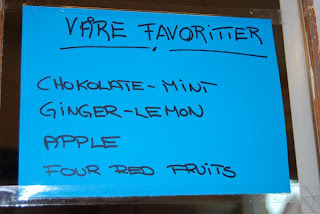 VÅRE FAVORITTER
CHOKOLATE-MINT
GINGER-LEMON
APPLE
FOUR RED FRUITS